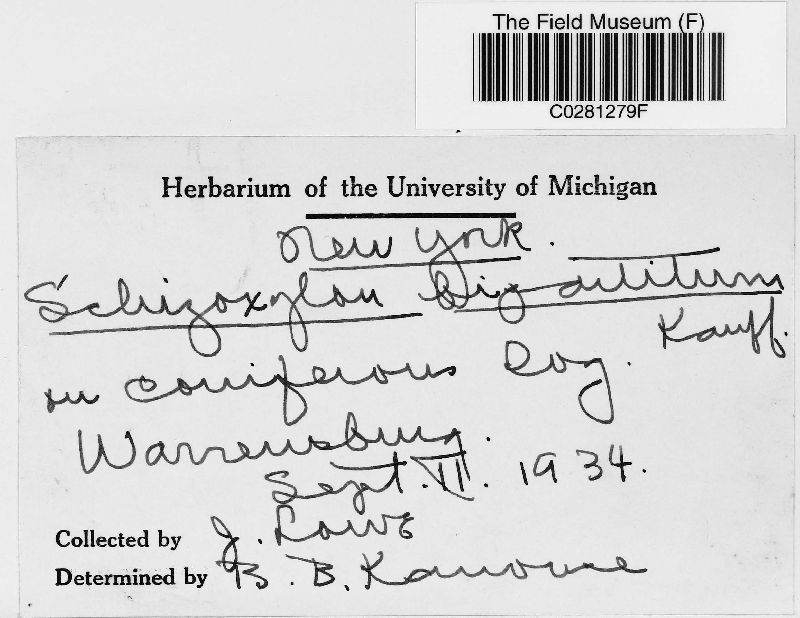 The Field Museum (F)
C0281279F
Herbarium of the University of Michigan
New York.
Schizoxylon
Kauff.
on coniferous log.
Warrensburg.
Sept. 11. 1934.
Collected by J. Lowe
Determined by B. B. Kanouse